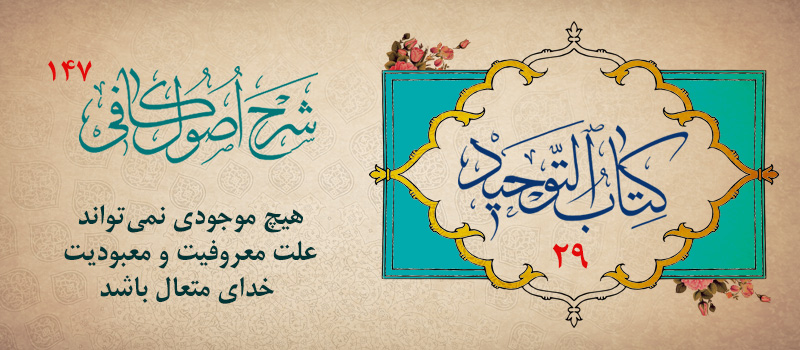 کتاب التوحید
۲۹
شرح اصول کافی
۱۴۷
هیچ موجودی نمی‌تواند
علت معروفیت و معبودیت
خدای متعال باشد